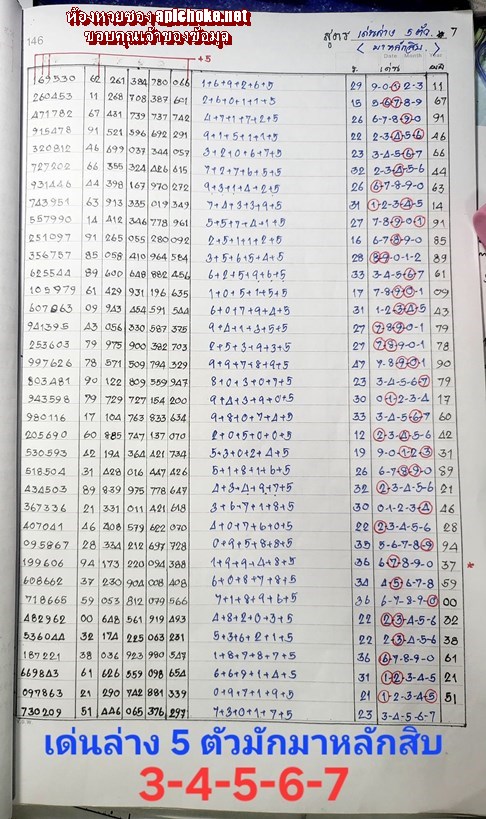 ห้องหวยซอง apichoke.net
ขอบคุณเจ้าของข้อมูล
146
สูตร เด่นล่าง 5 ตัว 7
( มาหลักสิบ )
Date Month
+5
รวม เด่น
169530 62 261 384 780 066 1+6+9+2+6+5 29 9-0-1-2-3 11
260453 11 268 708 387 601 2+6+0+1+1+5 15 5-6-7-8-9 67
471782 67 431 739 737 742 4+7+1+7+2+5 26 6-7-8-9-0 91
915478 91 521 596 692 291 9+1+5+1+1+5 22 2-3-4-5-6 46
320812 46 699 037 344 057 3+2+0+6+7+5 23 3-4-5-6-7 66
727202 66 355 324 426 615 7+2+7+6+5+5 32 2-3-4-5-6 44
931446 44 398 167 970 272 9+3+1+4+2+5 26 6-7-8-9-0 63
743951 63 913 335 019 349 7+4+3+3+9+5 31 1-2-3-4-5 14
557990 14 412 346 778 961 5+5+7+4+1+5 27 7-8-9-0-1 91
251097 91 265 055 280 092 2+5+1+1+2+5 16 6-7-8-9-0 85
356757 85 058 410 964 584 3+5+6+5+4+5 28 8-9-0-1-2 89
625544 89 600 648 882 456 6+2+5+9+6+5 33 3-4-5-6-7 61
105979 61 429 931 196 635 1+0+5+1+5+5 17 7-8-9-0-1 09
607063 09 943 454 591 544 6+0+7+9+4+5 31 1-2-3-4-5 43
941395 43 056 330 587 375 9+4+1+3+5+5 27 7-8-9-0-1 79
253603 79 975 900 382 703 2+5+3+9+3+5 27 7-8-9-0-1 78
997626 78 571 509 794 329 9+9+7+8+9+5 47 7-8-9-0-1 90
803481 90 122 809 559 947 8+0+3+0+7+5 23 3-4-5-6-7 79
943598 79 729 727 154 200 9+4+3+9+0+5 30 0-1-2-3-4 17
980116 17 104 763 833 634 9+8+0+7+4+5 33 3-4-5-6-7 60
205690 60 885 747 137 070 2+0+5+0+0+5 12 2-3-4-5-6 42
530593 42 194 364 421 734 5+3+0+2+4+5 19 9-0-1-2-3 31
518504 31 428 016 447 426 5+1+8+1+6+5 26 6-7-8-9-0 89
434503 89 839 975 778 647 4+3+4+9+7+5 32 2-3-4-5-6 21
367336 21 331 011 421 618 3+6+7+1+8+5 30 0-1-2-3-4 46
407041 46 408 579 622 070 4+0+7+6+0+5 22 2-3-4-5-6 28
095867 28 334 212 697 728 0+9+5+8+8+5 35 5-6-7-8-9 94
199606 94 173 220 094 388 1+9+9+4+8+5 36 6-7-8-9-0 37 *
608662 37 230 904 008 408 6+0+8+7+8+5 34 4-5-6-7-8 59
718665 59 053 812 079 566 7+1+8+9+6+5 36 6-7-8-9-0 00
482962 00 648 561 919 493 4+8+2+0+3+5 22 2-3-4-5-6 32
536044 32 174 225 063 281 5+3+6+2+1+5 22 2-3-4-5-6 38
187221 38 036 923 980 547 1+8+7+8+7+5 36 6-7-8-9-0 61
669843 61 626 559 098 654 6+6+9+1+4+5 31 1-2-3-4-5 21
097863 21 290 742 881 339 0+9+7+1+9+5 21 1-2-3-4-5 51
730209 51 446 065 376 297 7+3+0+1+7+5 23 3-4-5-6-7
เด่นล่าง 5 ตัวมักมาหลักสิบ
3-4-5-6-7